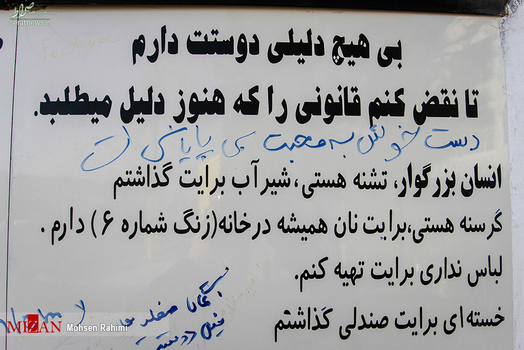 بی هیچ دلیلی دوستت دارم
تا نقض کنم قانونی را که هنوز دلیل میطلبد.
دست خوش به محبت بی پایانت
انسان بزرگوار، تشنه هستی، شیر آب برایت گذاشتم
گرسنه هستی،برایت نان همیشه درخانه(زنگ شماره ۶) دارم .
لباس نداری برایت تهیه کنم.
خسته‌ای برایت صندلی گذاشتم
MIZAN Mohsen Rahimi